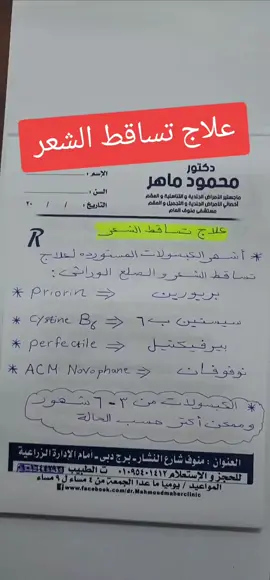 علاج تساقط الشعر
دكتور
محمود ماهر
ماجستير الأمراض الجلدية والتناسلية و العقم
أخصائي الأمراض الجلدية و التجميل و العقم
مستشفى منوف العام
الإسم :
السن :
التاريخ : / / ٢٠
R
علاج تساقط الشعر
* أشهر الكبسولات المستورده لعلاج
تساقط الشعر و الصلع الوراثى :
* priorin ⇒ بريورين
* cystine B6 ⇒ سيستين ب٦
* perfectile ⇒ بيرفيكتيل
* ACM Novophane ⇒ نوفوفان
* الكبسولات من ٣-٦ شهور
وممكن أكتر حسب الحالة
العنوان : منوف شارع النشار - برج دبى - امام الإدارة الزراعية
للحجز و الإستعلام ٠١٠٩٥٤٠١٤١٢ ت الطبيب
المواعيد / يوميا ما عدا الجمعة من ٤ مساء ل ٩ مساء
www.facebook.com/dr.Mahmoudmaherclinic